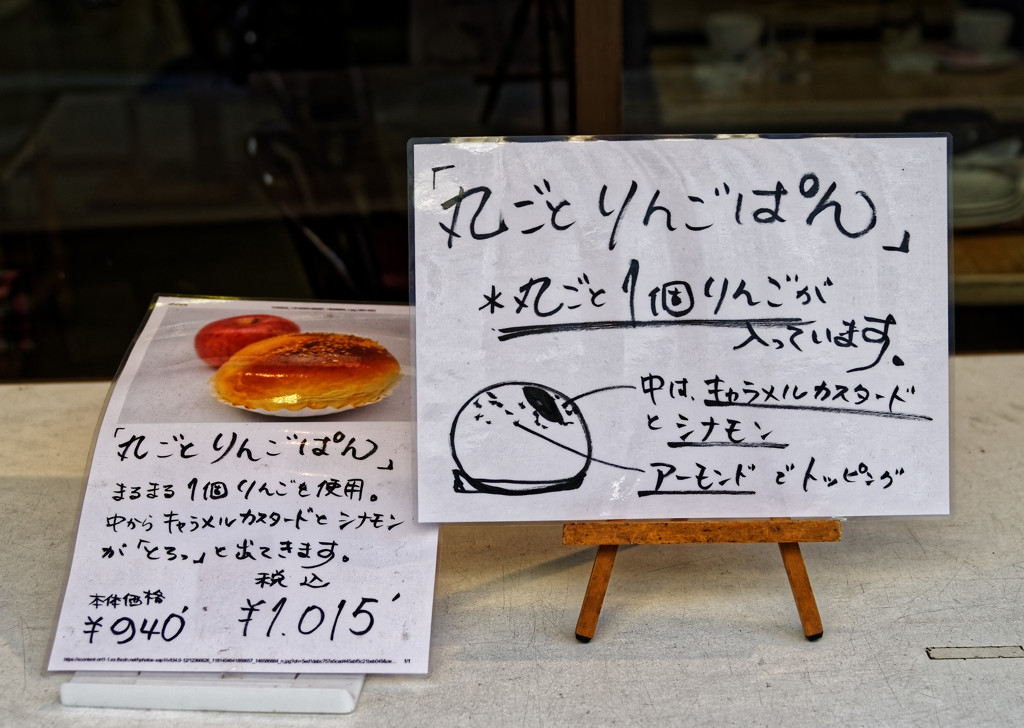 「丸ごとりんごぱん」
*丸ごと1個りんごが
入っています。
中は、キャラメルカスタード
とシナモン
アーモンドでトッピング
「丸ごとりんごぱん」
まるまる1個りんごを使用。
中からキャラメルカスタードとシナモン
が「とろっ」と出てきます。
税込
本体価格
¥940 ¥1.015
1/1